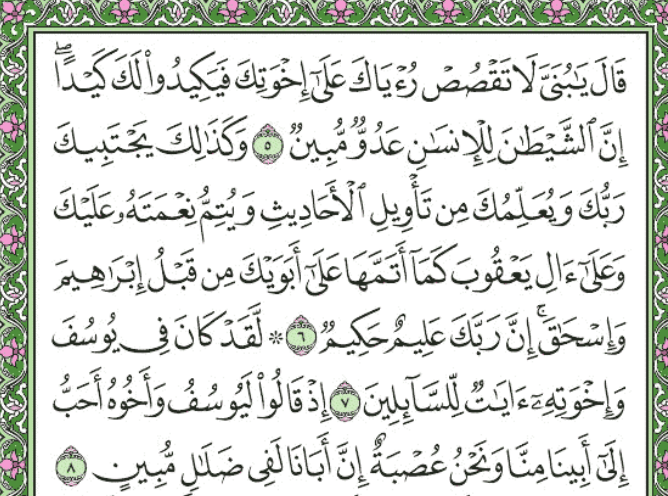 قَالَ يَٰبُنَىَّ لَا تَقْصُصْ رُءْيَاكَ عَلَىٰٓ إِخْوَتِكَ فَيَكِيدُوا۟ لَكَ كَيْدًا ۖ
إِنَّ ٱلشَّيْطَٰنَ لِلْإِنسَٰنِ عَدُوٌّ مُّبِينٌ ٥ وَكَذَٰلِكَ يَجْتَبِيكَ
رَبُّكَ وَيُعَلِّمُكَ مِن تَأْوِيلِ ٱلْأَحَادِيثِ وَيُتِمُّ نِعْمَتَهُۥ عَلَيْكَ
وَعَلَىٰٓ ءَالِ يَعْقُوبَ كَمَآ أَتَمَّهَا عَلَىٰٓ أَبَوَيْكَ مِن قَبْلُ إِبْرَٰهِيمَ
وَإِسْحَٰقَ ۚ إِنَّ رَبَّكَ عَلِيمٌ حَكِيمٌ ٦ ۞ لَّقَدْ كَانَ فِى يُوسُفَ
وَإِخْوَتِهِۦٓ ءَايَٰتٌ لِّلسَّآئِلِينَ ٧ إِذْ قَالُوا۟ لَيُوسُفُ وَأَخُوهُ أَحَبُّ
إِلَىٰٓ أَبِينَا مِنَّا وَنَحْنُ عُصْبَةٌ إِنَّ أَبَانَا لَفِى ضَلَٰلٍ مُّبِينٍ ٨